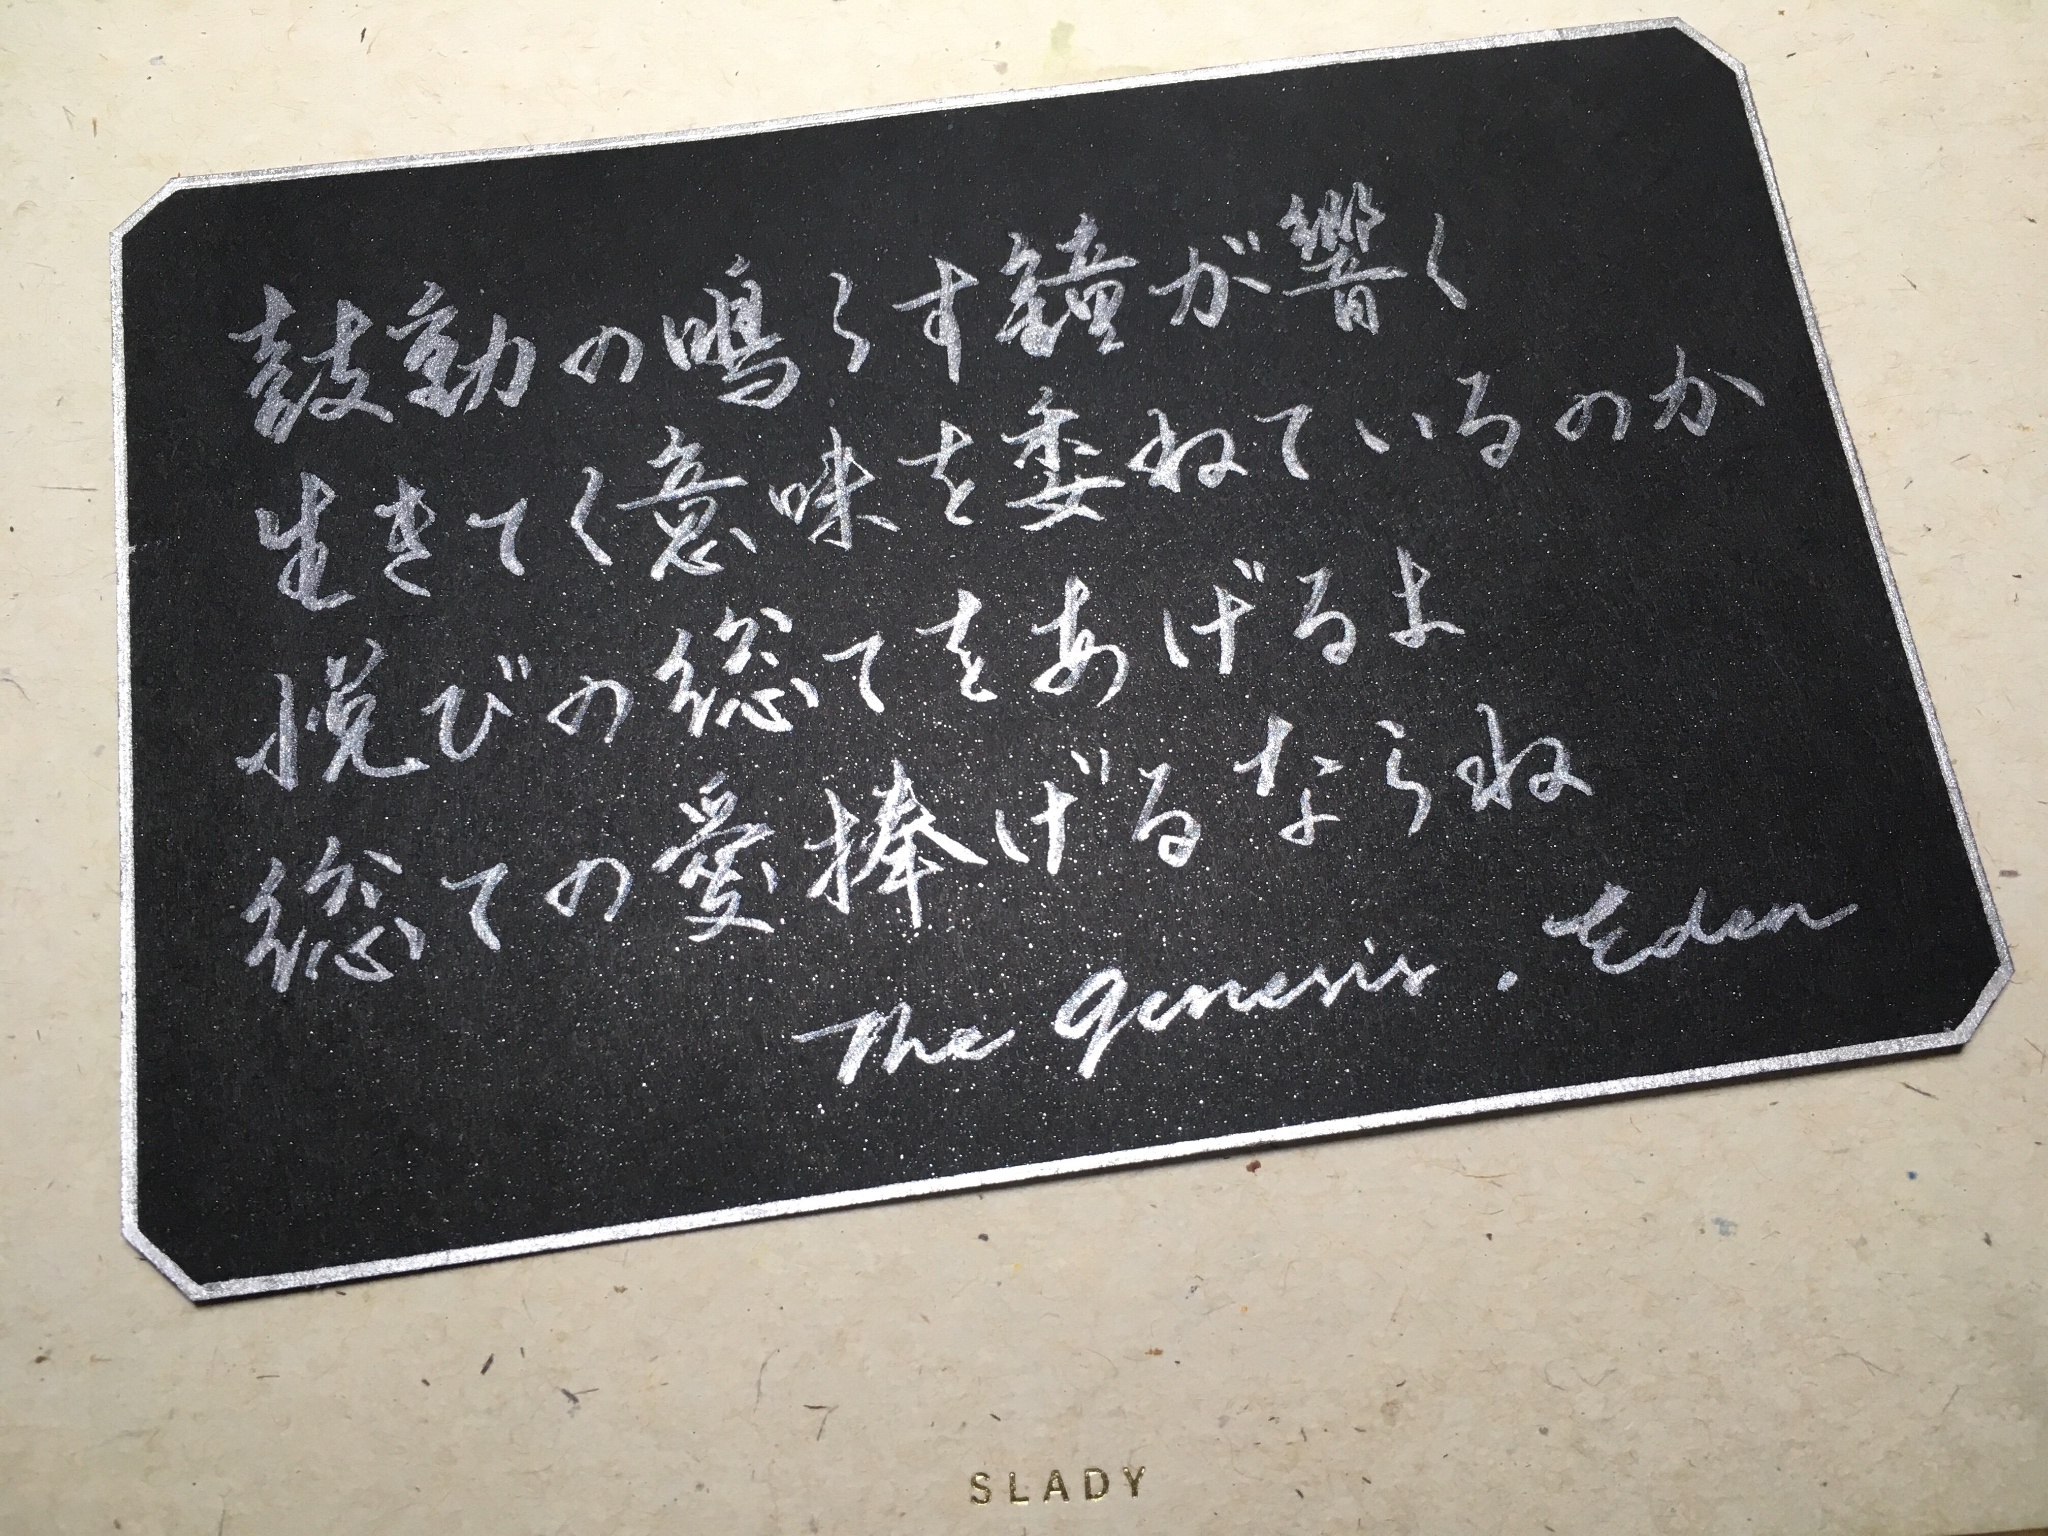 鼓動の鳴らす鐘が響く
生きてく意味を委ねているのか
悦びの総てをあげるよ
総ての愛捧げるならね
The genesis . Eden
SLADY